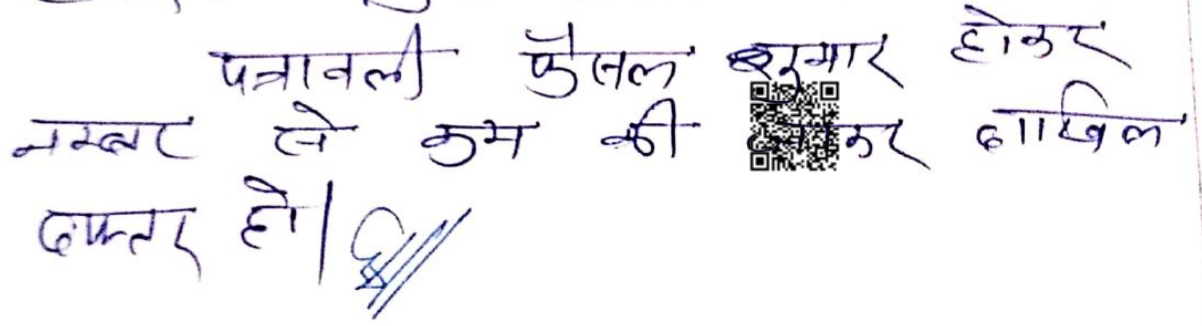 पत्रावली फैसल शुमार होकर
नम्बर से कम की कर दाखिल
दफ्तर हो।